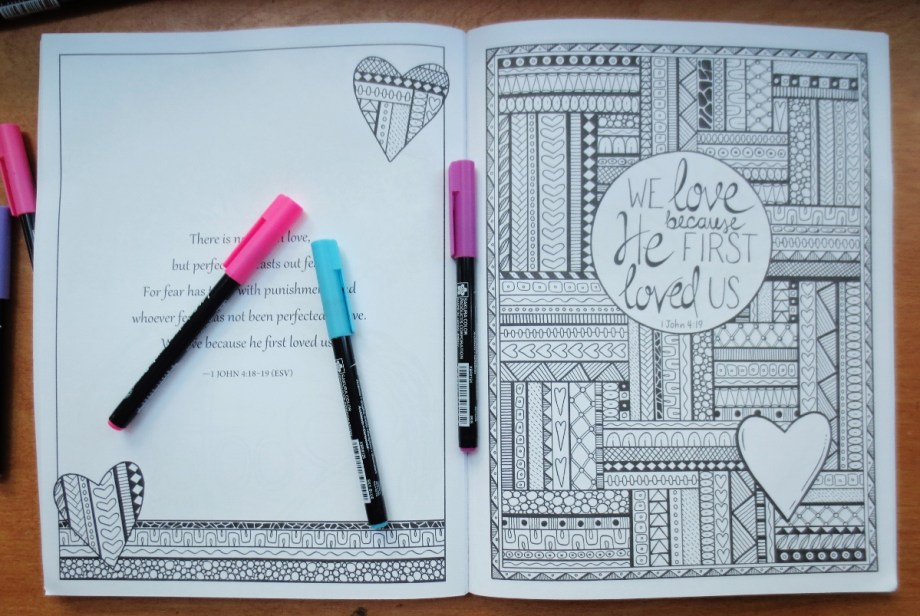 There is n love,
but perfec casts out fe
For fear has with punishmen d
whoever fe as not been perfected ve.
W ve because he first loved us
—1 JOHN 4:18–19 (ESV)
WE love
because
He FIRST
loved US
1 John 4:19